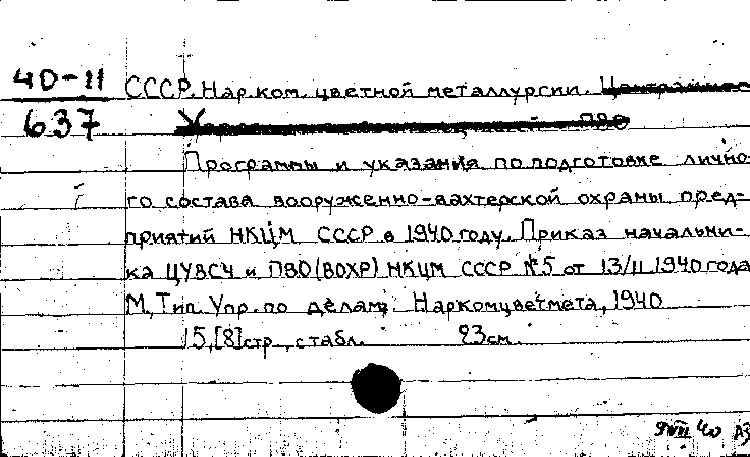 40-11
637
СССР. Нар.ком. цветной металлургии.
ПВО
Программы и указания по подготовке лично-
го состава вооруженно-вахтерской охраны пред-
приятий НКЦМ СССР в 1940 году. Приказ начальни-
ка ЦУВСЧ и ПВО (ВОХР) НКЦМ СССР №5 от 13/II 1940 года
М., Тип. Упр. по делам Наркомцветмета, 1940
15,[8] стр., с табл. 23 см.
9 VII 40